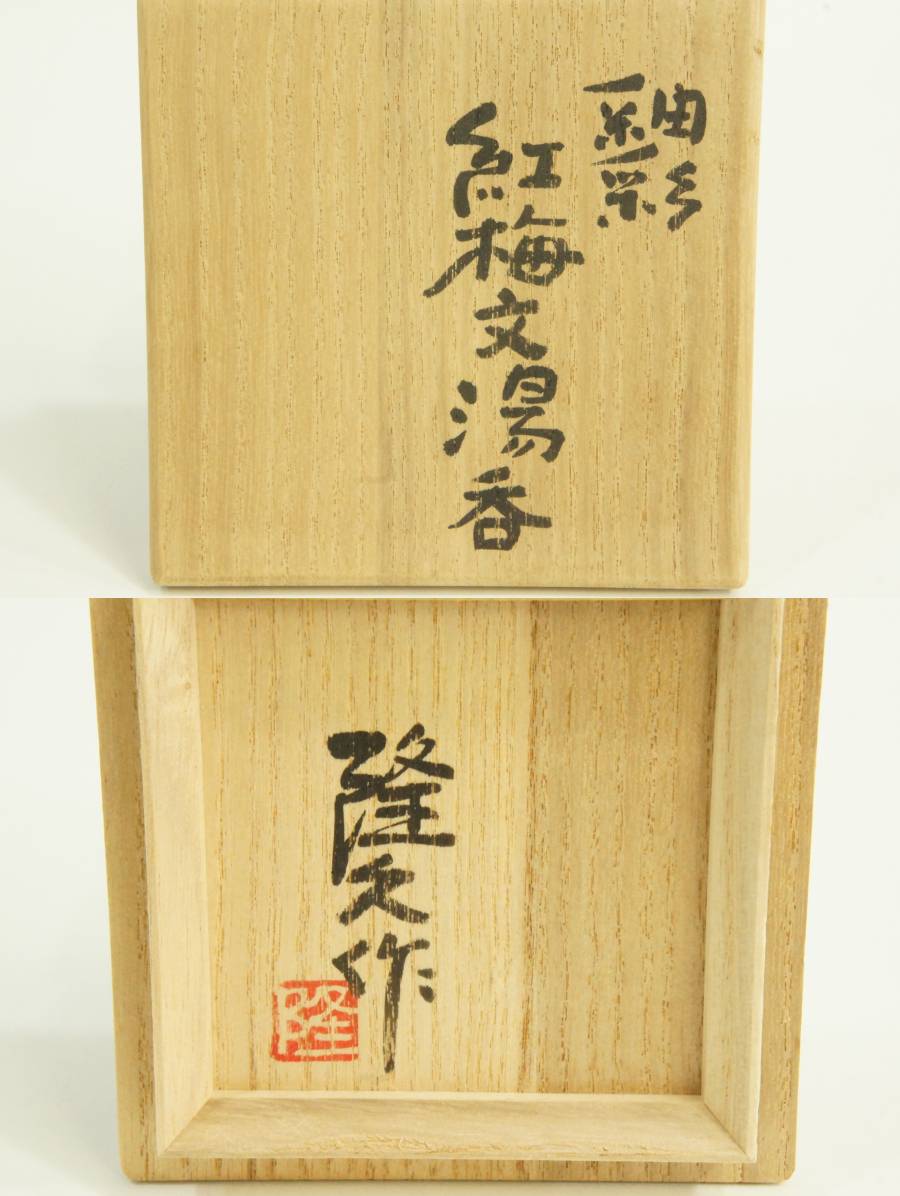 釉彩
紅梅文湯呑
隆久作
隆